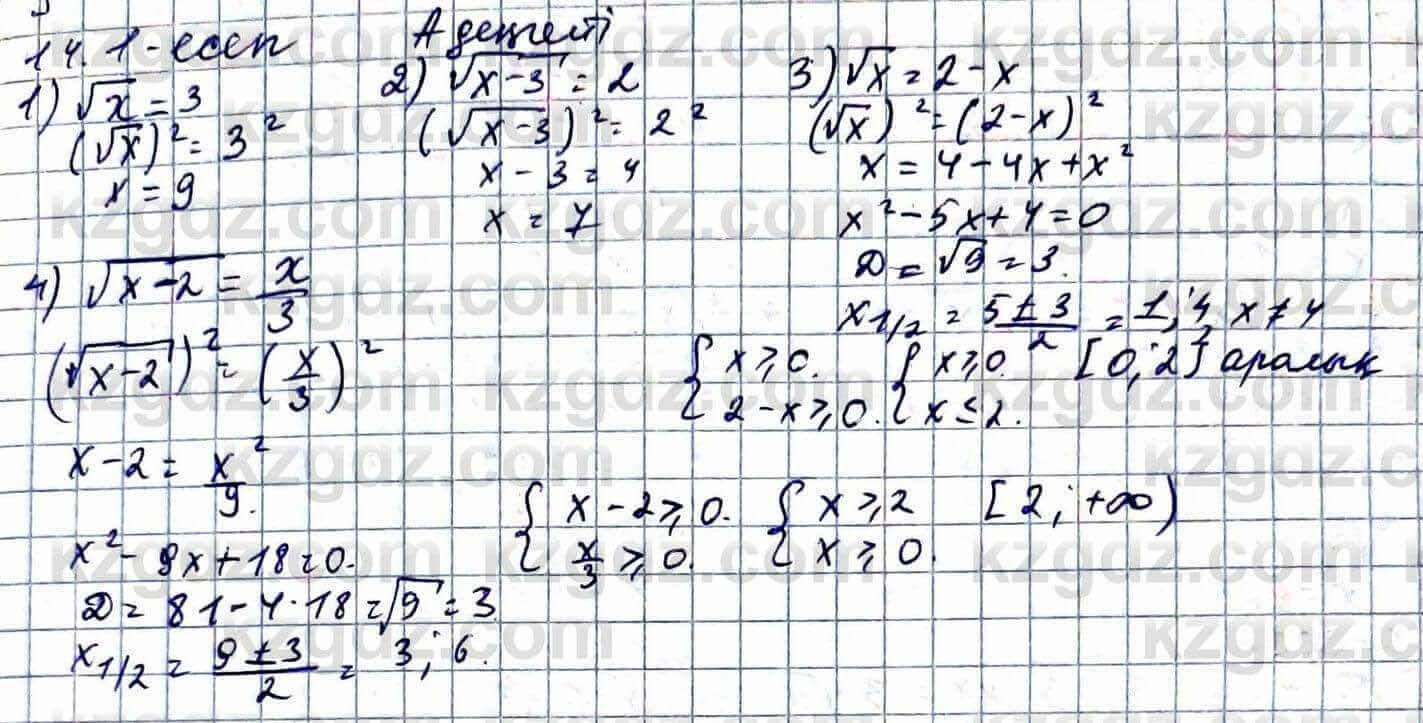 14.1-есеп
А деңгейі
1) √x = 3
(√x)² = 3²
x = 9
2) √(x-3) = 2
(√(x-3))² = 2²
x - 3 = 4
x = 7
3) √x = 2 - x
(√x)² = (2-x)²
x = 4 - 4x + x²
x² - 5x + 4 = 0
D = √9 = 3.
x1/2 = (5 ± 3)/2 = 1; 4, x ≠ 4
{ x ≥ 0. { x ≥ 0 [0; 2] аралық
{ 2 - x ≥ 0. { x ≤ 2.
4) √(x-2) = x/3
(√(x-2))² = (x/3)²
x - 2 = x²/9.
x² - 9x + 18 = 0.
D = 81 - 4·18 = √9 = 3
x1/2 = (9 ± 3)/2 = 3; 6.
{ x - 2 ≥ 0. { x ≥ 2 [2; +∞)
{ x/3 ≥ 0. { x ≥ 0.
kzgdz.com